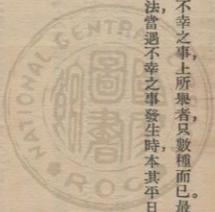 不幸之事上所舉者，只數種而已。最
法，當遇不幸之事發生時，本其平日
NATIONAL CENTRAL
圖書
ROC